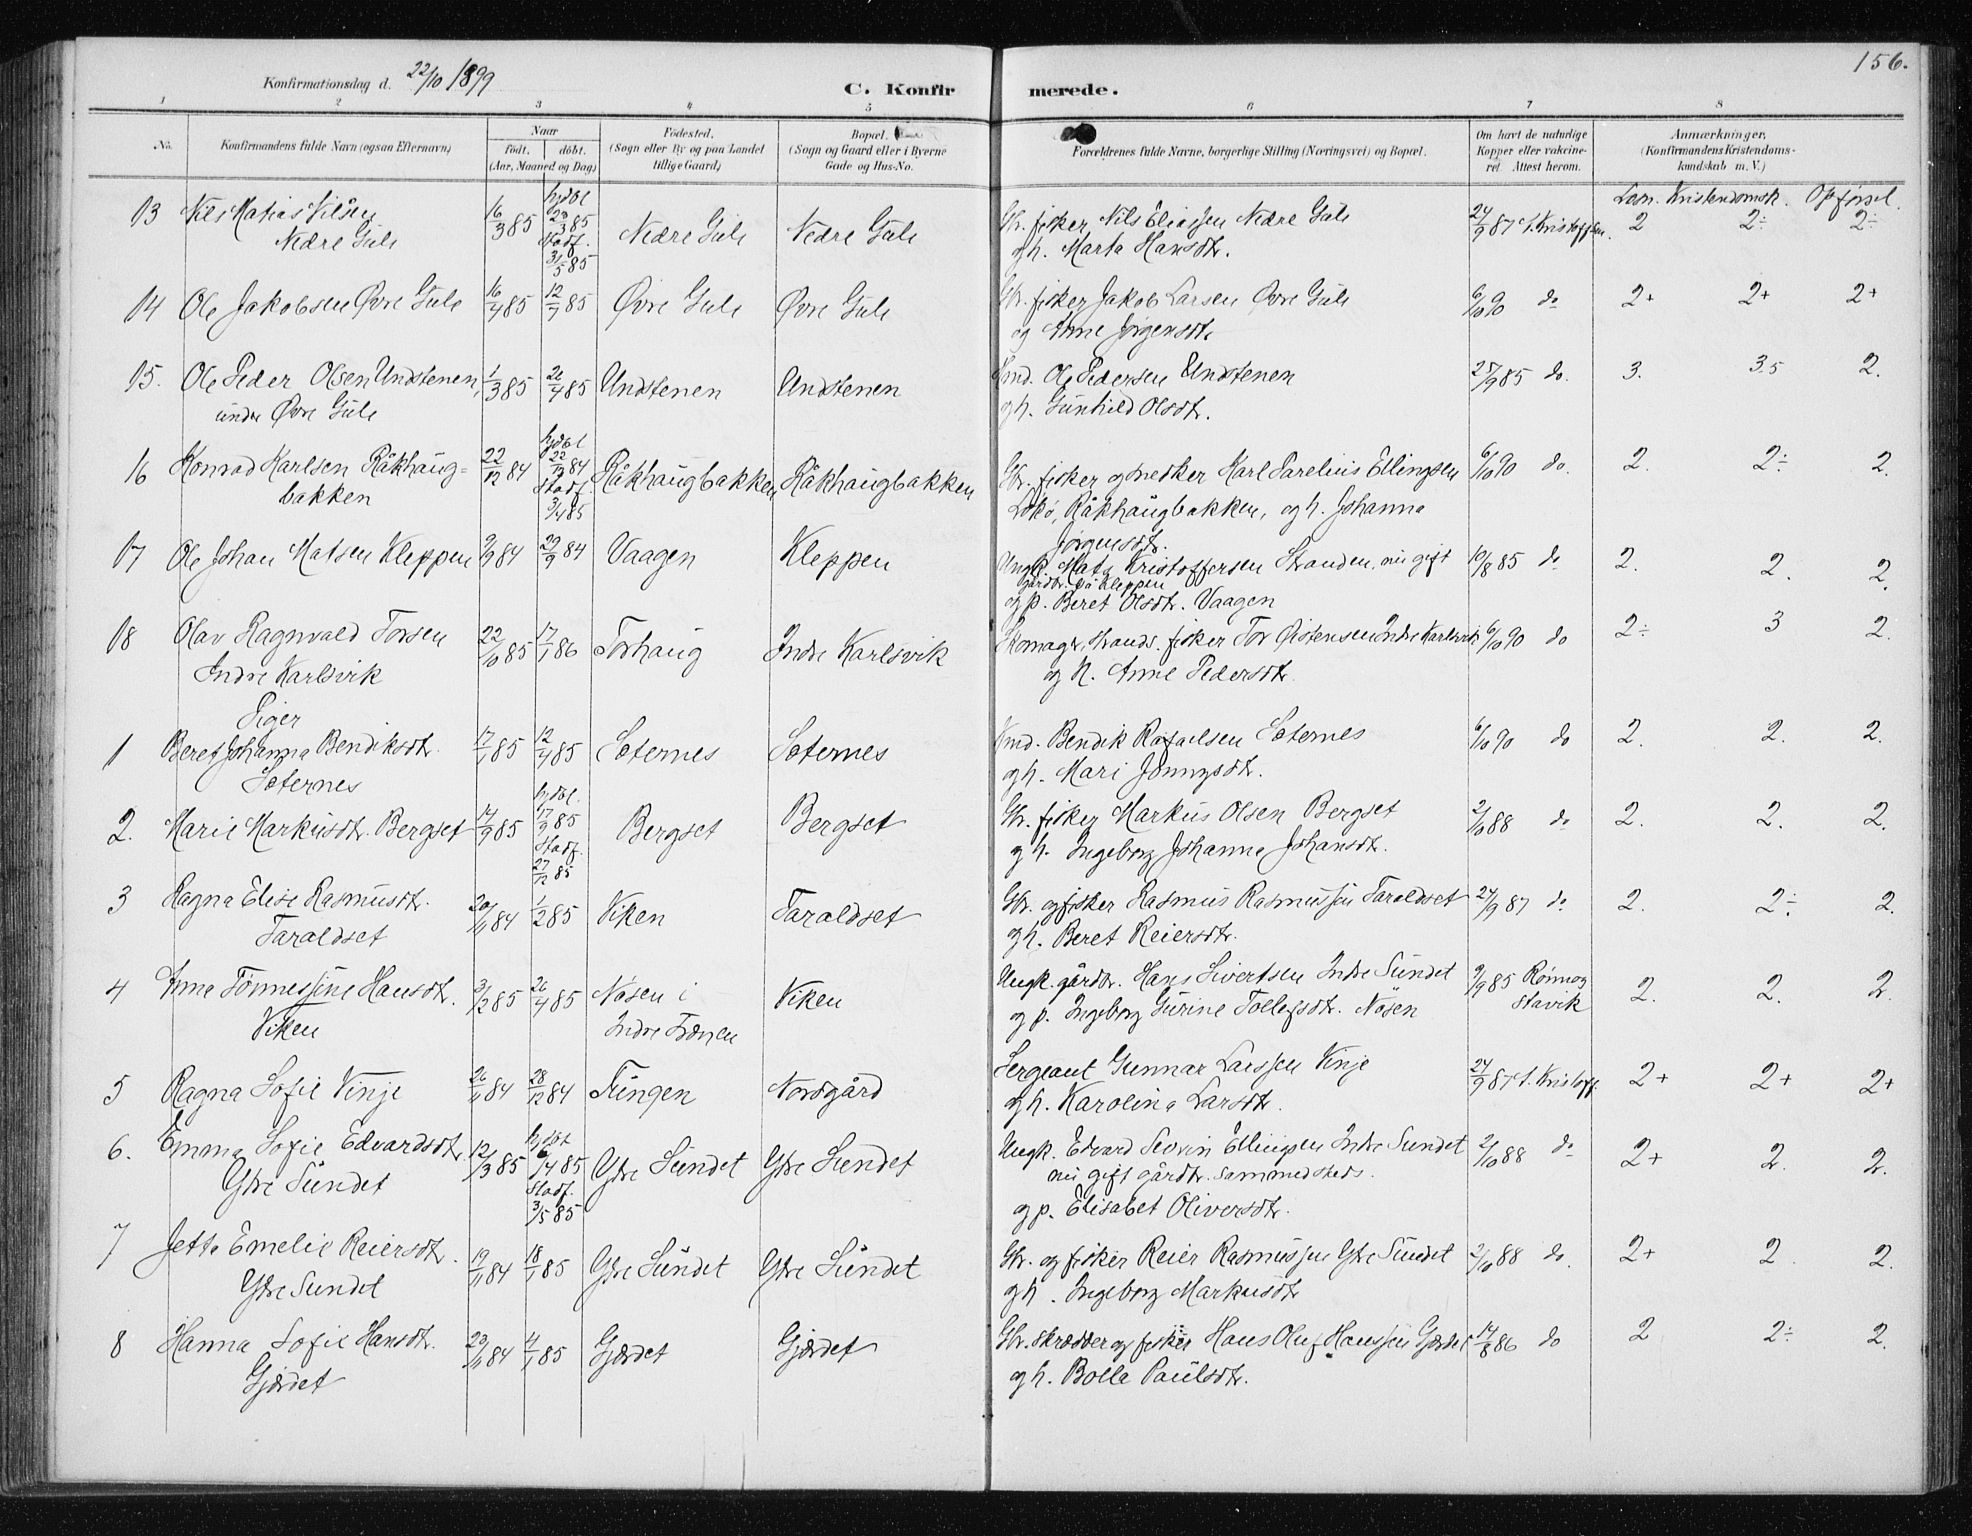 156.
Konfirmationsdag d. 22/10 1899
C. Konfirmerede.
1 2 3 4 5 6 7 8
No.
Konfirmandens fulde Navn (ogsaa Efternavn)
Naar
født. døbt.
(Aar, Maaned og Dag)
Fødested.
(Sogn eller By og paa Landet
tillige Gaard)
Bopæl.
(Sogn og Gaard eller i Byerne
Gade og Hus-No.
Forældrenes fulde Navne, borgerlige Stilling (Næringsvei) og Bopæl.
Om havt de naturlige
Kopper eller vakcine-
ret. Attest herom.
Anmærkninger,
(Konfirmandens Kristendoms-
kundskab m. V.)
Læsn. Kristendomsk. Opførsel.
13 Nils Matias Nilsen
Nedre Gule
16/3 85 hjdbt 23/3 85 Stadf. 31/5 85 Nedre Gule Nedre Gule
Gbr. fisker Nils Eliassen Nedre Gule
og h. Marta Hansdtr.
24/9 87 S. Kristoffersen. 2 2÷ 2÷
14 Ole Jakobsen Øvre Gule 16/4 85 12/7 85 Øvre Gule Øvre Gule
Gbr. fisker Jakob Larsen Øvre Gule
og Anne Jørgensdtr
6/10 90 do 2+ 2+ 2+
15. Ole Peder Olsen Undstenen,
under Øvre Gule
1/3 85 26/4 85 Undstenen Undstenen
Hmd. Ole Pedersen Undstenen
og h. Gunhild Olsdtr.
27/9 85 do. 3. 3.5 2.
16 Konrad Karlsen Råkhaug-
bakken
22/12 84 hjdbt 22/12 84 Stadf. 3/4 85 Råkhaugbakken Råkhaugbakken
Gbr. fisker og snedker Karl Parelius Ellingsen
Lökö, Råkhaugbakken, og h. Johanna
Jörgensdtr.
6/10 90 do. 2. 2÷ 2.
17 Ole Johan Matsen Kleppen 9/9 84 29/9 84 Vaagen Kleppen
Ungk. Mats Kristoffersen Stranden, nu gift
gårdbr. på Kleppen
og p. Beret Olsdtr. Vaagen
10/8 85 do 2. 2. 2.
18 Olav Ragnvald Torsen
Indre Karlsvik
22/10 85 17/1 86 Torhaug Indre Karlsvik
Skomager, Strands. fisker Tor Østensen Indre Karlsvik
og h. Anne Pedersdtr.
6/10 90 do 2÷ 3 2.
Piger
1 Beret Johanna Bendiksdtr.
Sæternes
17/1 85 12/4 85 Sæternes Sæternes
Hmd. Bendik Rafaelsen Sæternes
og h. Mari Jonnysdtr.
6/10 90 do 2. 2. 2.
2. Marie Markusdtr. Bergset 14/9 85 hjdbt. 17/9 85 Stadf. 27/12 85 Bergset Bergset
Gbr. fisker Markus Olsen Bergset
og h. Ingeborg Johanna Johansdtr.
2/10 88 do 2. 2. 2.
3 Ragna Elise Rasmusdtr.
Taraldset
20/11 84 1/2 85 Viken Taraldset
Gbr. og fisker Rasmus Rasmussen Taraldset
og h. Beret Reiersdtr.
24/9 87 do 2. 2÷. 2.
4 Anne Tönnessine Hansdtr.
Viken
3/2 85 26/4 85 Nösen i
Indre Frænen
Viken
Ungk. gårdbr. Hans Sivertsen Indre Sundet
og p. Ingeborg Gurine Tollefsdtr. Nösen
9/9 85 Rönnog
Stavik
2. 2. 2.
5 Ragna Sofie Vinje 26/11 84 28/12 84 Tungen Nordgård
Sergeant Gunnar Larssen Vinje
og h. Karolina Larsdtr.
24/9 87 S. Kristoff 2+ 2+ 2+
6. Emma Sofie Edvardsdtr.
Ytre Sundet
12/3 85 hjdbt 6/4 85 Stadf. 3/5 85 Ytre Sundet Ytre Sundet
Ungk. Edvard Severin Ellingsen Indre Sundet
nu gift gårdbr. sammesteds.
og p. Elisabet Oliversdtr.
2/10 88 do 2+ 2. 2.
7 Jette Emelie Reiersdtr.
Ytre Sundet
19/11 84 18/1 85 Ytre Sundet Ytre Sundet
Gbr. og fisker Reier Rasmussen Ytre Sundet
og h. Ingeborg Markusdtr
2/10 88 do. 2+ 2. 2.
8 Hanna Sofie Hansdtr.
Gjærdet
23/11 84 4/1 85 Gjærdet Gjærdet
Gbr. skrædder og fisker Hans Oluf Hanssen Gjærdet
og h. Bolla Paulsdtr.
14/8 86 do 2 2÷ 2.